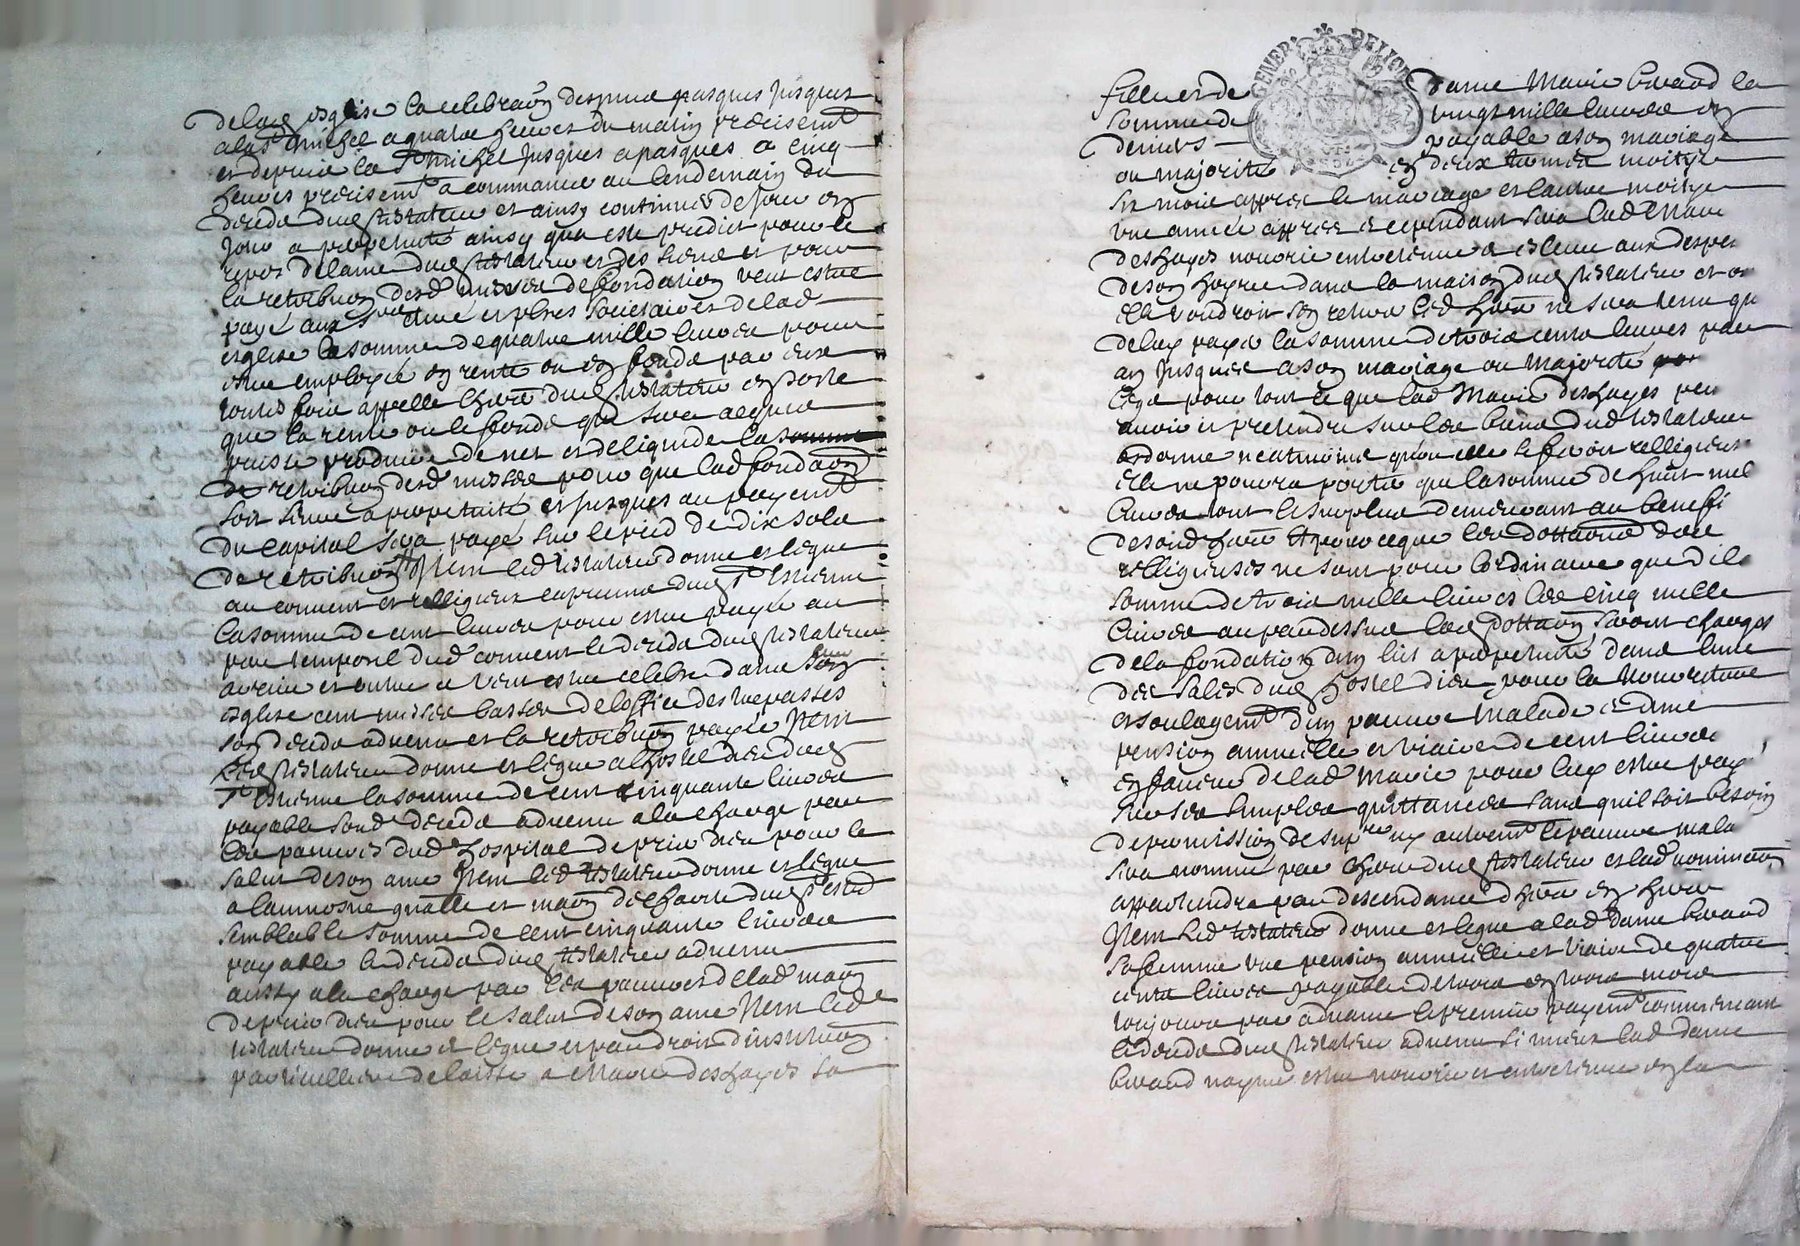 de lad esglise la celebraon despuis pasques jusques
a la St Michel a quatre heures du matin precisemt
et depuis la St Michel jusques a pasques a cinq
heures precisemt a commancer au lendemain du
deceds dud testateur et ainsy continuer de jour en
jour a perpetuité ainsy que est predict pour le
repos de lame dud testateur et des siens et pour
la retribuon desd messes de fondation veut estre
payé aux Srs curé et pbres societaires de lad
esglise la somme de quatre mille livres pour
estre employée en rente ou en fonds par eux
toutes fois appellé lheoir dud testateur en sorte
que la rente ou le fonds qui sera acquis
puisse produire de net et de liquide la somme
de retribuon desd messes pour que lad fondaon
soit servie a perpetuité et jusques au payemt
du capital sera payé sur le pied de dix sols
de retribuon Item led testateur donne et legue
au couvent et relligieux capucins dud St Estienne
la somme de cent livres pour estre payée au
pere temporel dud couvent le deceds dud testateur
advenu et outre ce veut estre celebré dans leur
esglise cent messes basses de loffice des trepassés
son deceds advenu et la retribuon payée Item
led testateur donne et legue a lhostel dieu dud
St Estienne la somme de cent cinquante livres
payable sond deceds advenu a la charge par
les pauvres dud hospital de prier dieu pour le
salut de son ame Item led testateur donne et legue
a laumosne gnalle et maon de charité dud St Estne
semblable somme de cent cinquante livres
payable le deceds dud testateur advenu
aussy a la charge par les pauvres de lad maon
de prier dieu pour le salut de son ame Item led
testateur donne et legue et par droit dinstituon
particulliere delaisse a Marie Deshayes sa
fille et de dame Marie Evrard la
somme de vingt mille livres en
deniers payable a son mariage
ou majorité en deux termes moitye
six mois appres le mariage et lautre moitye
une année appres et cependant sera lad Marie
Deshayes nourrie entretenue et eslevée aux despes
de son heoir dans la maison dud testateur et ou
elle voudroit sen retirer led heoir ne sera tenu que
de luy payer la somme de trois cents livres par
an jusques a son mariage ou majorité
legs pour tout ce que lad Marie Deshayes peu
avoir et pretendre sur les biens dud testateur
ordonne neatmoins quou elle se feroit relligieuse
elle ne pourra porter que la somme de huit mil
livres tout le surplus demeurant au benefi
de sond heoir et pource que les dottaons des
relligieuses ne sont pour lordinaire que dils
somme de trois mille livres les cinq mille
livres au par dessus lad dottaon seront chargés
de la fondation dun lict a perpetuité dans lune
des sales dud hostel dieu pour la nourriture
et soulagemt dun pauvre malade et dune
pension annuelle et viagere de cent livres
en faveur de lad Marie pour luy estre payé
sur ses simples quittances sans quil soit besoin
de permission de superieurs ny autremt le pauvre mala
sera nommé par lheoir dud testateur et lad nominaon
appartiendra par descendance dheoir en heoir
Item led testateur donne et legue a lad dame Evrard
sa femme une pension annuelle et viagere de quatre
cents livres payable de trois en trois mois
toujours par advance le premier payemt commencant
le deceds dud testateur advenu si mieux lad dame
Evrard nayme estre nourrie et entretenue en la
GENER DE LION